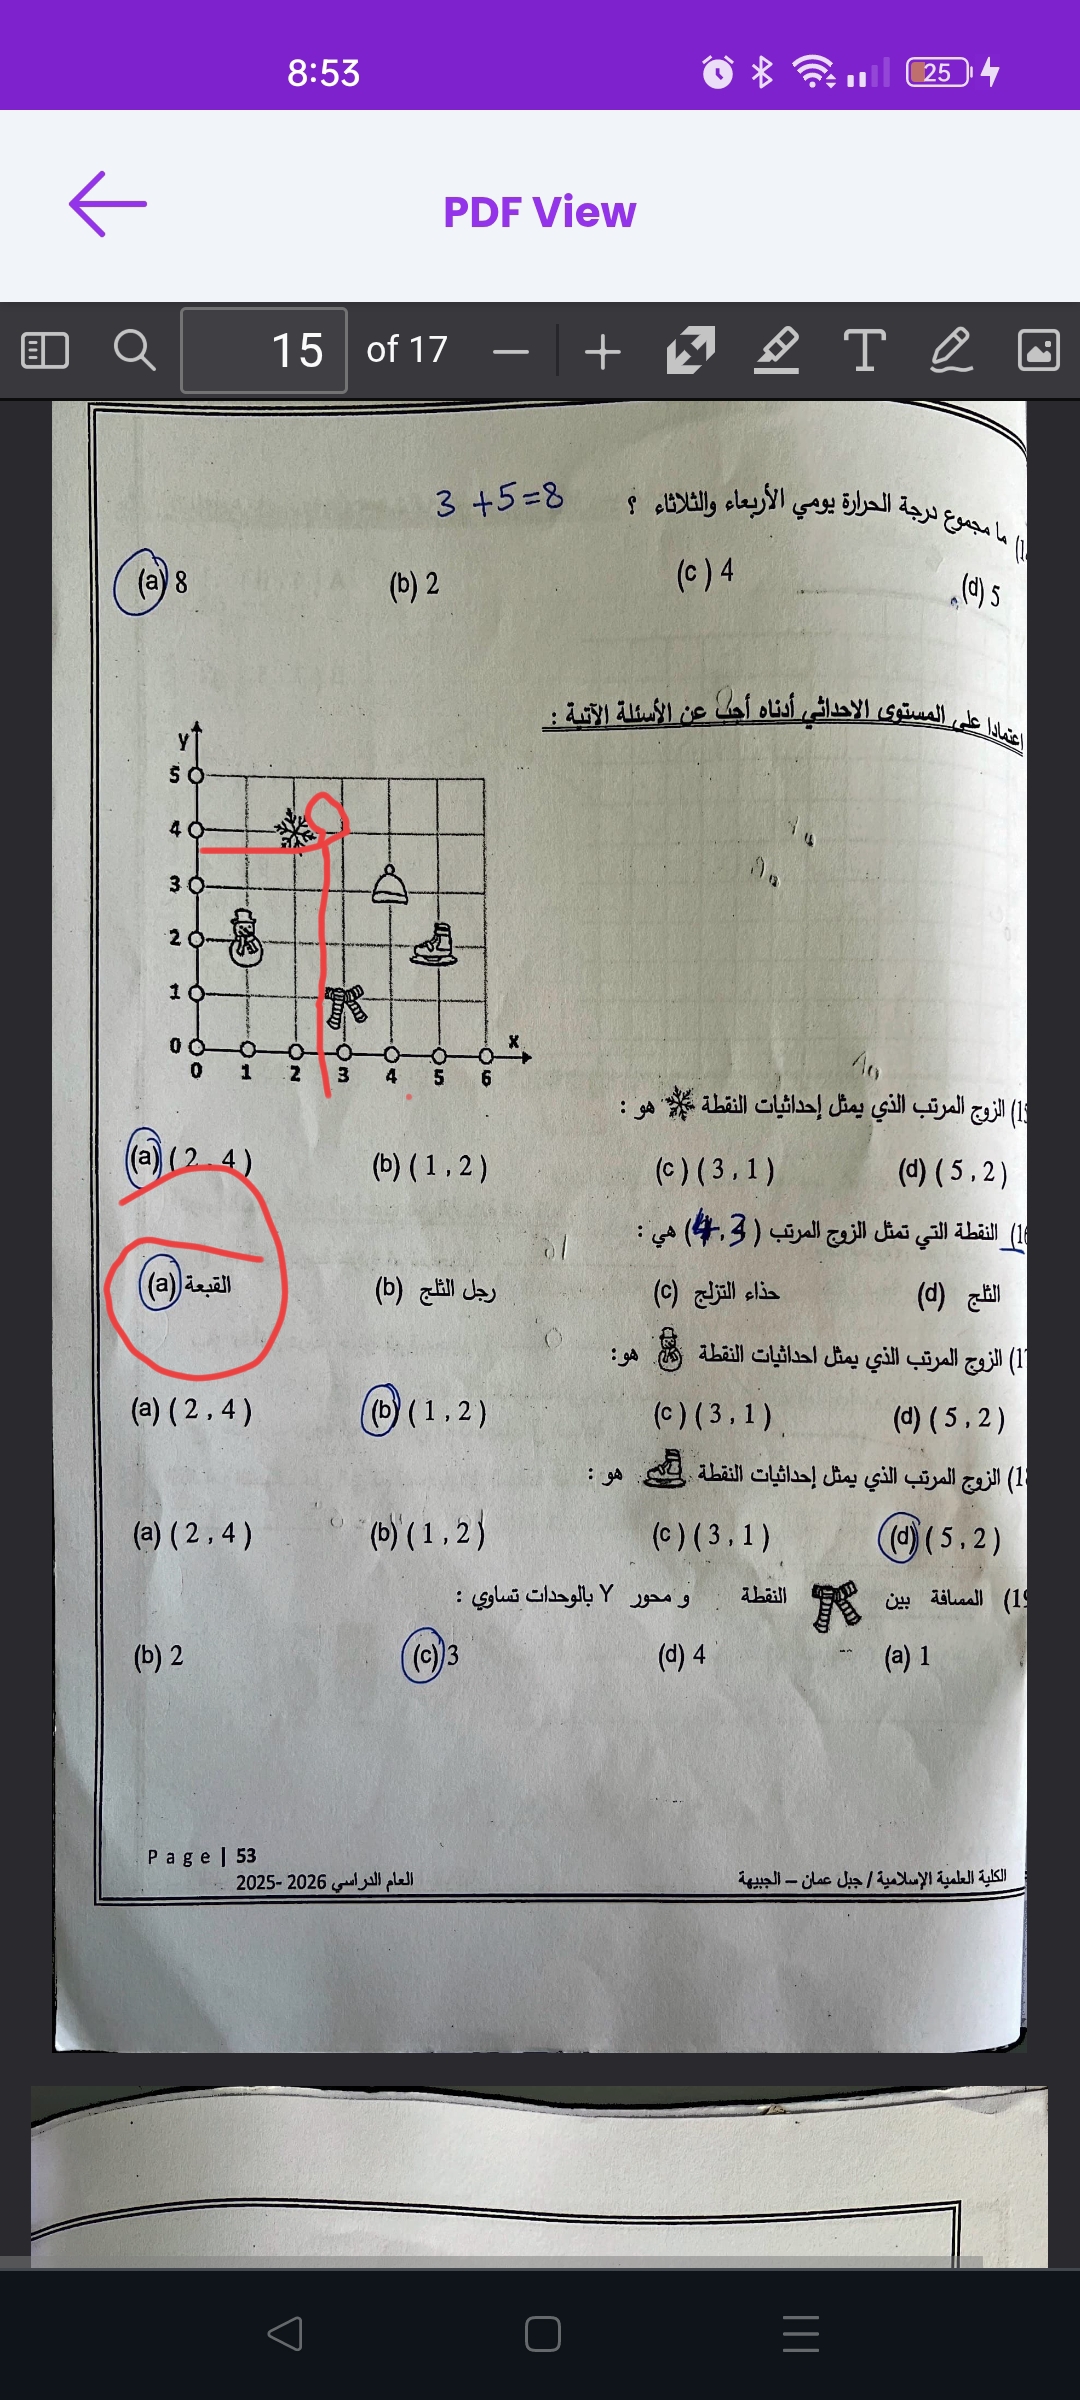 8:53
25
PDF View
15 of 17
ما مجموع درجة الحرارة يومي الأربعاء والثلاثاء ؟ 3 +5=8
(a) 8 (b) 2 (c ) 4 (d) 5
اعتمادا على المستوى الاحداثي أدناه أجب عن الأسئلة الآتية :
y
5
4
3
2
1
0
x
0 1 2 3 4 5 6
الزوج المرتب الذي يمثل إحداثيات النقطة هو :
(a) ( 2 , 4 ) (b) ( 1 , 2 ) (c ) ( 3 , 1 ) (d) ( 5 , 2 )
النقطة التي تمثل الزوج المرتب (4,3) هي :
(a) القبعة (b) رجل الثلج (c) حذاء التزلج (d) الثلج
الزوج المرتب الذي يمثل احداثيات النقطة هو:
(a) ( 2 , 4 ) (b) ( 1 , 2 ) (c ) ( 3 , 1 ) (d) ( 5 , 2 )
الزوج المرتب الذي يمثل إحداثيات النقطة هو :
(a) ( 2 , 4 ) (b) ( 1 , 2 ) (c ) ( 3 , 1 ) (d) ( 5 , 2 )
المسافة بين النقطة و محور Y بالوحدات تساوي :
(b) 2 (c) 3 (d) 4 (a) 1
Page | 53
الكلية العلمية الإسلامية / جبل عمان – الجبيهة العام الدراسي 2026 -2025